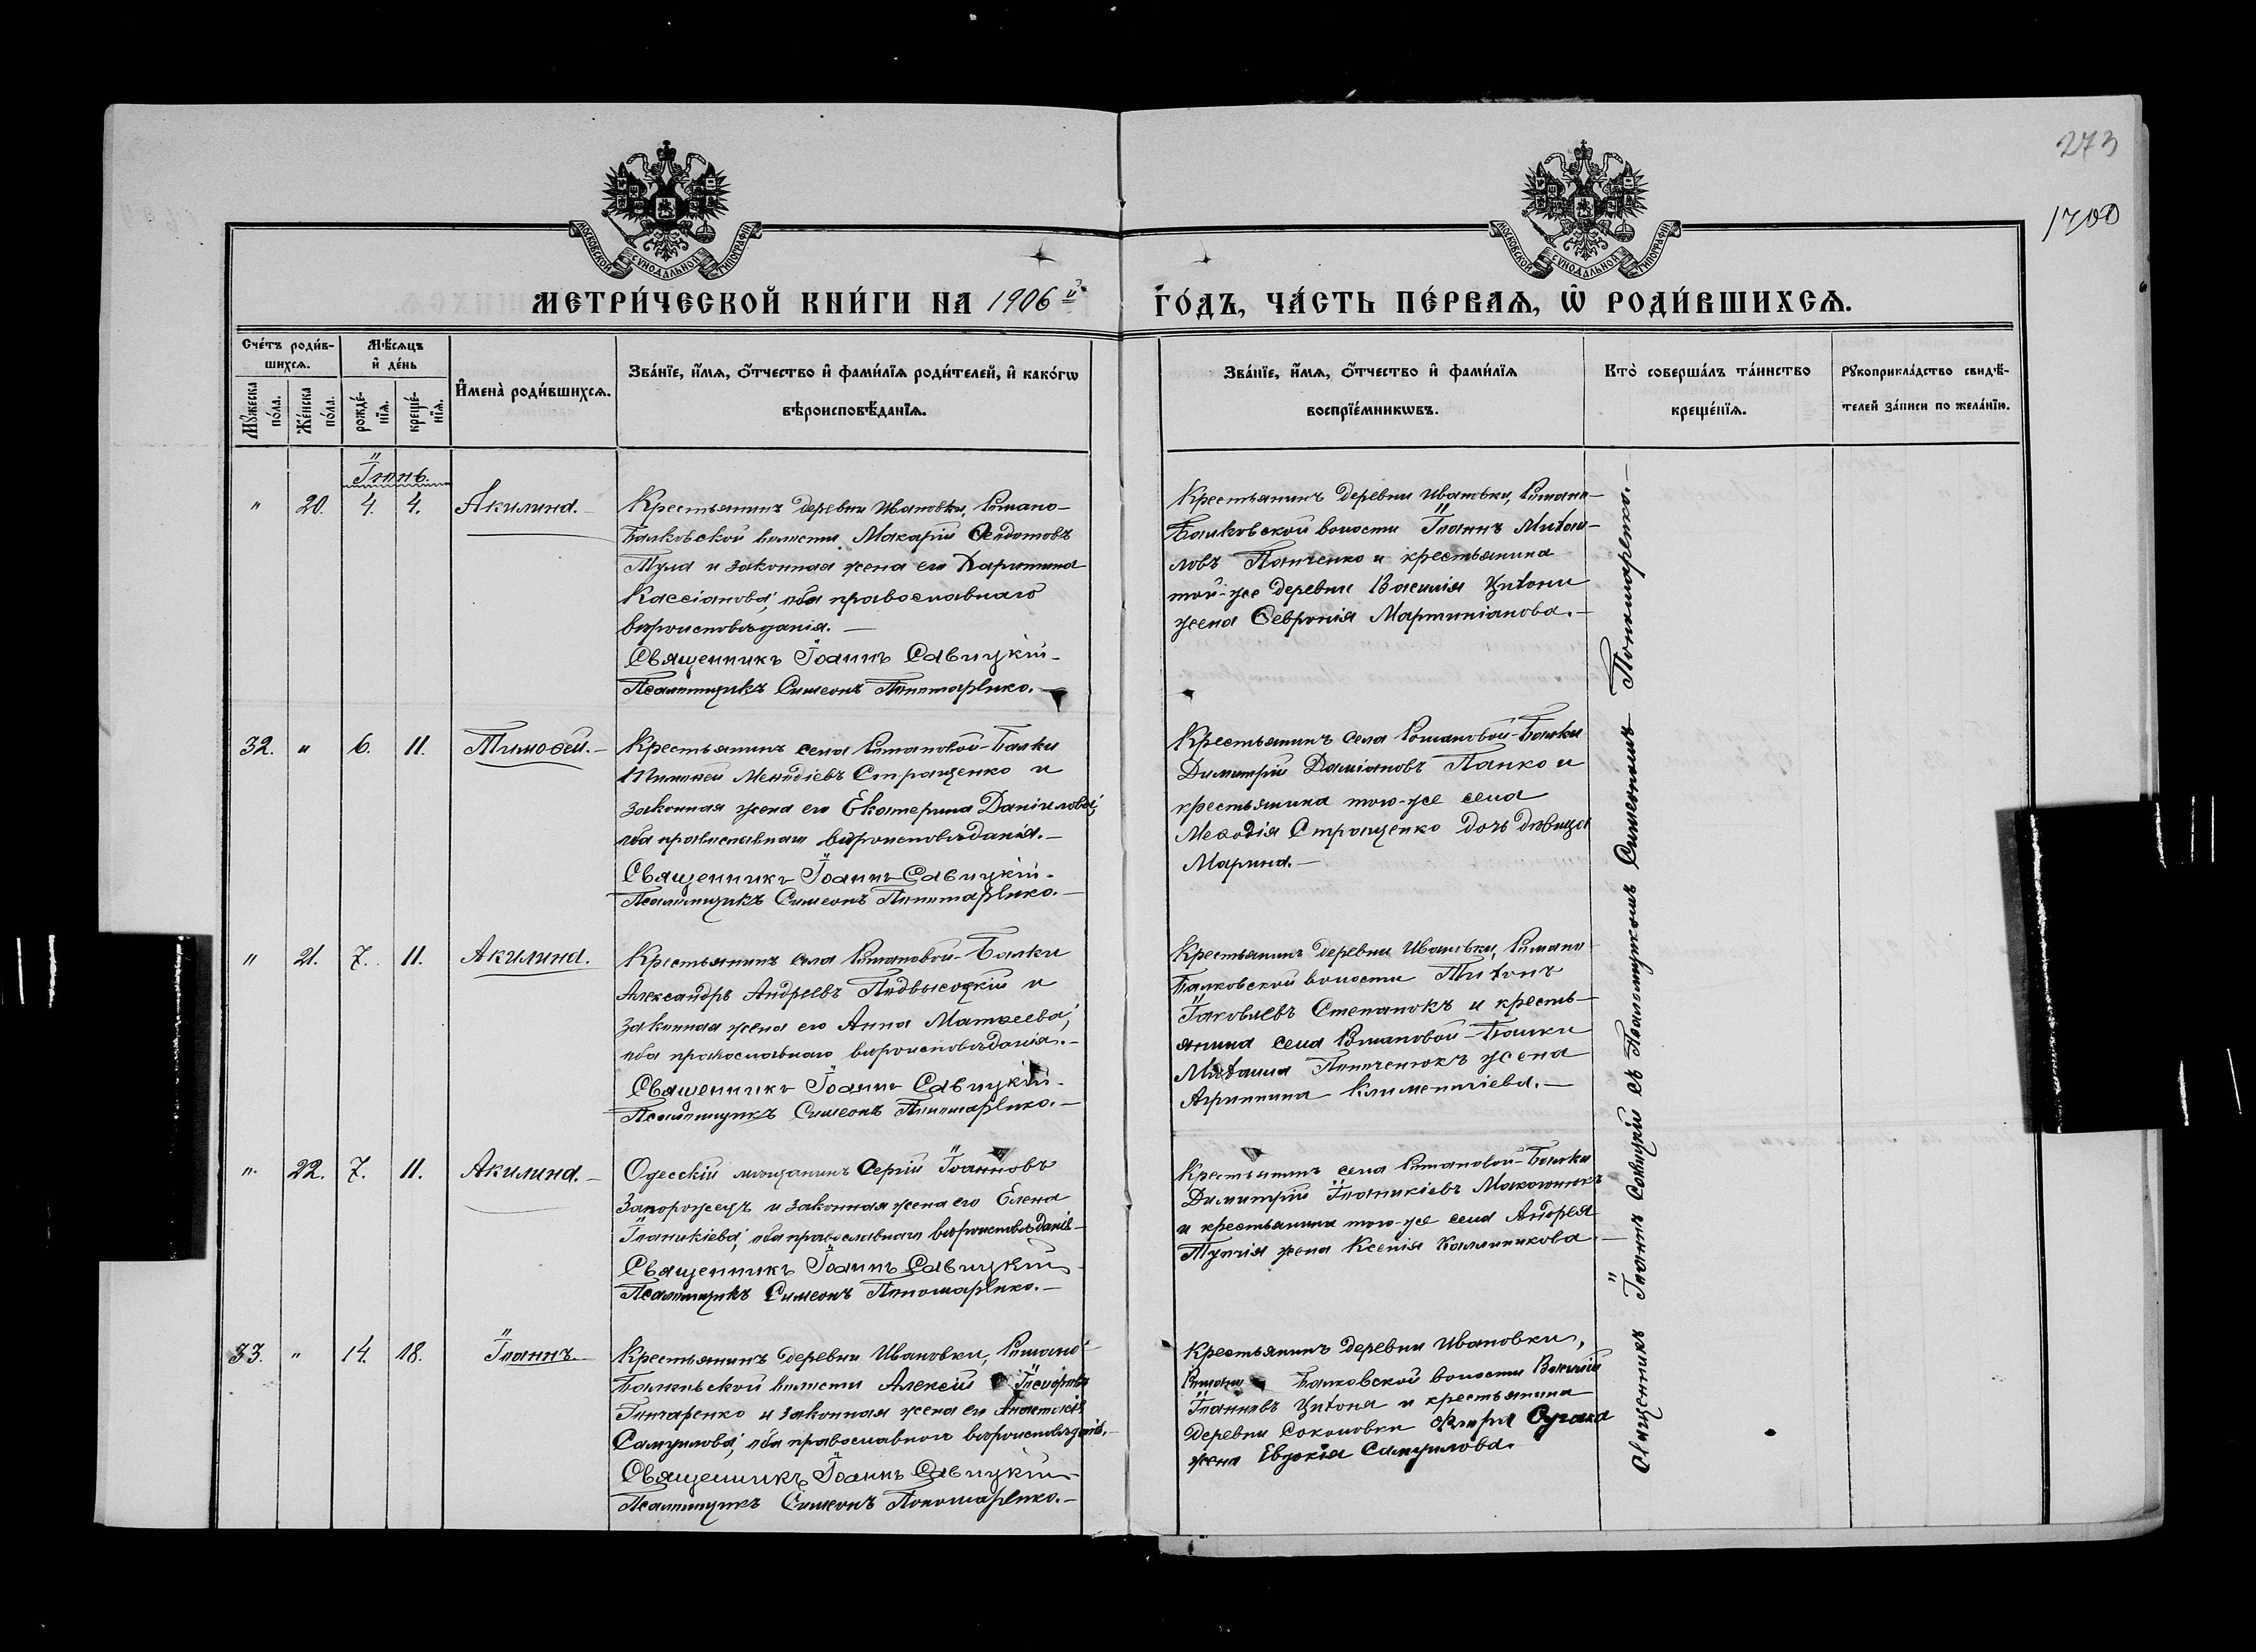 273
1700
МОСКОВСКОЙ СѴНОДАЛЬНОЙ ТИПОГРАФІИ
МОСКОВСКОЙ СѴНОДАЛЬНОЙ ТИПОГРАФІИ
МЕТРИ́ЧЕСКОЙ КНИ́ГИ НА 1906й
ГО́ДЪ, ЧА́СТЬ ПЕ́РВАѦ, Ѽ РОДИ́ВШИХСѦ.
Сче́тъ роди́в-
шихсѧ.
Мꙋ́жеска по́ла.
Же́нска по́ла.
Мѣ́сѧцъ
и҆ де́нь
рожде́-
нїѧ.
креще́-
нїѧ.
И҆мена̀ роди́вшихсѧ.
Зва́нїе, и҆́мѧ, ѻ҆́тчество и҆ фами́лїѧ роди́телей, и҆ како́гѡ
вѣроисповѣ́данїѧ.
Зва́нїе, и҆́мѧ, ѻ҆́тчество и҆ фами́лїѧ
воспрїе́мникѡвъ.
Кто̀ соверша́лъ та́инство
креще́нїѧ.
Рꙋкоприкла́дство свидѣ́-
телей за́писи по жела́нїю.
Іюнь.
" 20. 4. 4. Акилина.
Крестьянинъ деревни Ивановки, Романо-
Балковской волости Макарій Ѳеодотовъ
Тула и законная жена его Харитина
Кассіанова, оба православнаго
вѣроисповѣданія.—
Священникъ Іоаннъ Савицкій-
Псаломщикъ Симеонъ Пономаренко.—
Крестьянинъ деревни Ивановки, Романо-
Балковской волости Іоаннъ Михаи-
ловъ Панченко и крестьянина
той-же деревни Василія Цихони
жена Февронія Мартиніанова.—
32. " 6. 11. Тимоѳей.—
Крестьянинъ села Романовой-Балки
Меѳодіевъ Стращенко и
законная жена его Екатерина Даніилова,
оба православнаго вѣроисповѣданія.—
Священникъ Іоаннъ Савицкій-
Псаломщикъ Симеонъ Пономаренко.—
Крестьянинъ села Романовой-Балки
Димитрій Даміановъ Панко и
крестьянина того-же села
Меѳодія Стращенко дочь дѣвица
Марина.—
" 21. 7. 11. Акилина.
Крестьянинъ села Романовой-Балки
Александръ Андреевъ Подвысоцкій и
законная жена его Анна Матѳеева,
оба православнаго вѣроисповѣданія.—
Священникъ Іоаннъ Савицкій-
Псаломщикъ Симеонъ Пономаренко.—
Крестьянинъ деревни Ивановки, Романо-
Балковской волости Тихонъ
Іаковлевъ Степанокъ и кресть-
янина села Романовой-Балки
Михаила жена
Агриппина Климентіева.—
" 22. 7. 11. Акилина.—
Одесскій мѣщанинъ Сергій Іоанновъ
Запорожецъ и законная жена его Елена
Іоаникіева, оба православнаго вѣроисповѣданія-
Священникъ Іоаннъ Савицкій
Псаломщикъ Симеонъ Пономаренко.—
Крестьянинъ села Романовой-Балки
Димитрій Іоаникіевъ
и крестьянина того-же села Андрея
жена Ксенія Каллиникова.—
33. " 14. 18. Іоаннъ.
Крестьянинъ деревни Ивановки, Романо-
Балковской волости Алексій
Гончаренко и законная жена его Анастасія
Самуилова, оба православнаго вѣроисповѣданія.—
Священникъ Іоаннъ Савицкій-
Псаломщикъ Симеонъ Пономаренко.—
Крестьянинъ деревни Ивановки,
Романо Балковской волости Василій
Іоанновъ Цихоня и крестьянина
деревни Соколовки
жена Евдокія Самуилова.
Священникъ Іоаннъ Савицкій съ Псаломщикомъ Симеономъ Пономаренко.—